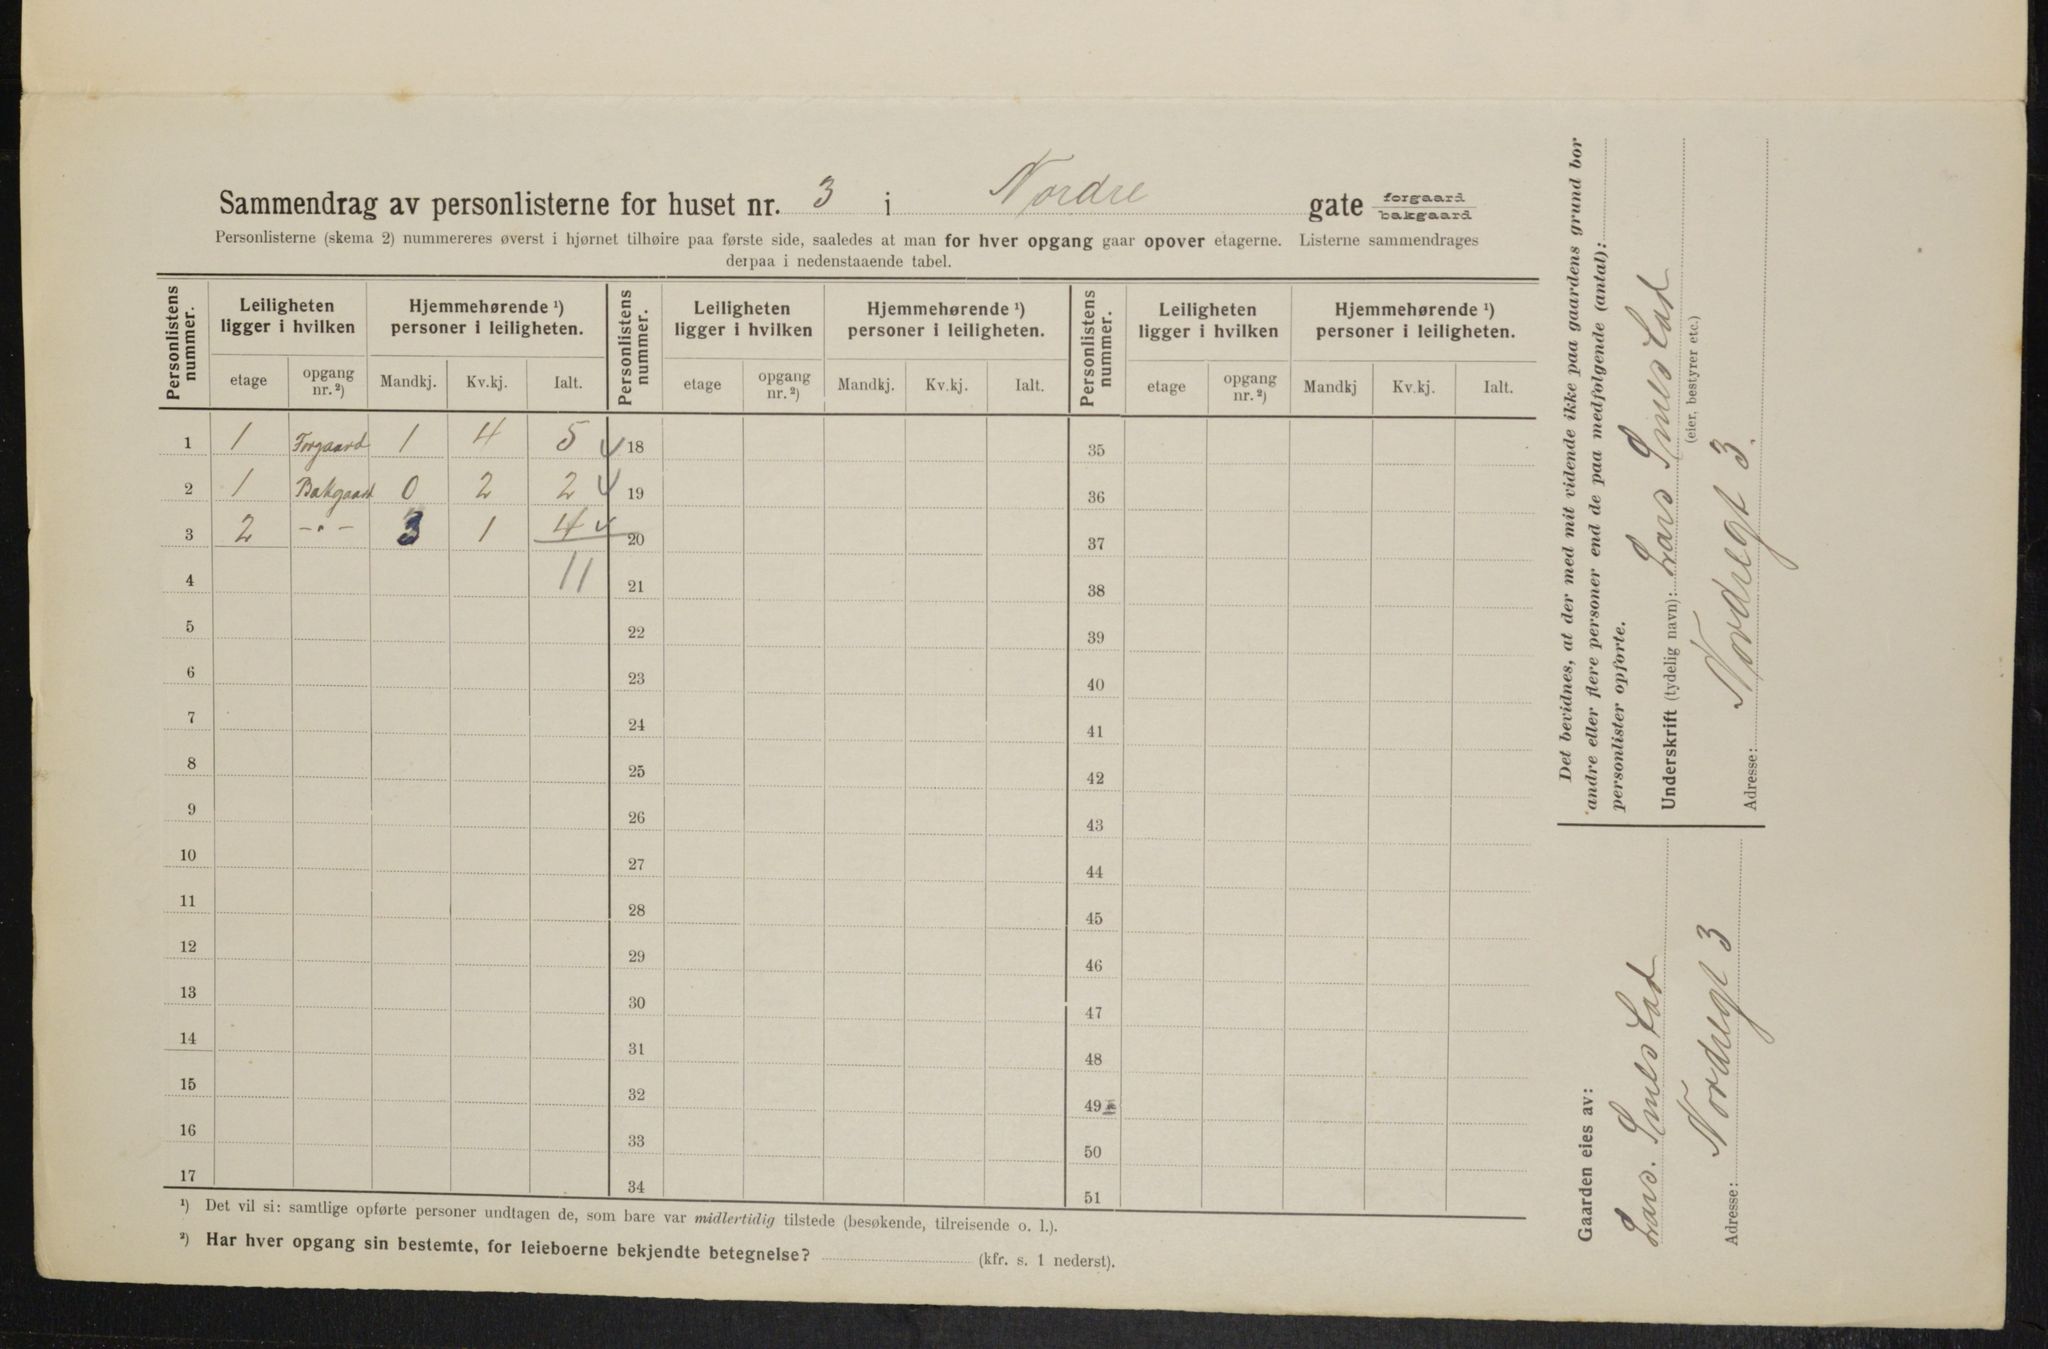 Sammendrag av personlisterne for huset nr. 3 i Nordre gate forgaard bakgaard
Personlisterne (skema 2) nummereres øverst i hjørnet tilhøire paa første side, saaledes at man for hver opgang gaar opover etagerne. Listerne sammendrages
derpaa i nedenstaaende tabel.
Personlistens nummer. Leiligheten ligger i hvilken Hjemmehørende ¹) personer i leiligheten. Personlistens nummer. Leiligheten ligger i hvilken Hjemmehørende ¹) personer i leiligheten. Personlistens nummer. Leiligheten ligger i hvilken Hjemmehørende ¹) personer i leiligheten.
etage opgang nr. ²) Mandkj. Kv.kj. Ialt. etage opgang nr. ²) Mandkj. Kv.kj. Ialt. etage opgang nr. ²) Mandkj Kv.kj. Ialt.
1 1 Forgaard 1 4 5 18 35
2 1 Bakgaard 0 2 2 19 36
3 2 -"- 3 1 4 20 37
4 11 21 38
5 22 39
6 23 40
7 24 41
8 25 42
9 26 43
10 27 44
11 28 45
12 29 46
13 30 47
14 31 48
15 32 49
16 33 50
17 34 51
¹) Det vil si: samtlige opførte personer undtagen de, som bare var midlertidig tilstede (besøkende, tilreisende o. l.).
²) Har hver opgang sin bestemte, for leieboerne bekjendte betegnelse? (kfr. s. 1 nederst).
Det bevidnes, at der med mit vidende ikke paa gaardens grund bor
andre eller flere personer end de paa medfølgende (antal):
personlister opførte.
Underskrift (tydelig navn): Lars Smestad
(eier, bestyrer etc.)
Adresse: Nordregt 3.
Gaarden eies av:
Lars. Smestad
Adresse: Nordregt 3